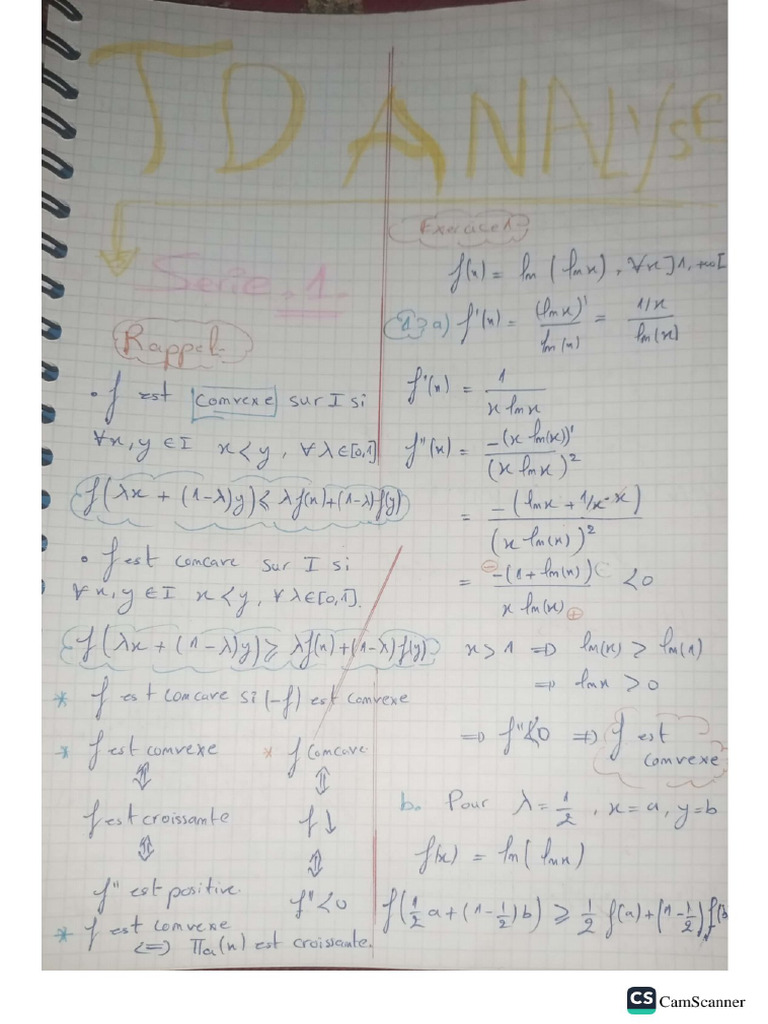 TD ANALYSE
Serie.1.
Rappel.
• f est convexe sur I si
∀x, y ∈ I x < y, ∀λ∈[0,1]
f(λx + (1-λ)y) ≤ λf(x)+(1-λ)f(y)
• f est concave sur I si
∀x, y ∈ I x < y, ∀λ∈[0,1].
f(λx + (1-λ)y) ≥ λf(x)+(1-λ)f(y)
* f est concave si (-f) est convexe
* f est convexe * f concave
⇕ ⇕
f est croissante f ↓
⇕ ⇕
f'' est positive. f'' < 0
* f est convexe
<=> πa(x) est croissante.
Exercice 1.
f(x) = ln(lnx), ∀x ]1, +∞[
1) a) f'(x) = (lnx)'/ln(x) = 1/x / ln(x)
f'(x) = 1 / x lnx
f''(x) = -(x ln(x))' / (x lnx)²
= -(lnx + 1/x · x) / (x ln(x))²
= ⊖ -(1 + ln(x)) / x ln(x) ⊕ < 0
x > 1 => ln(x) ≥ ln(1)
=> lnx > 0
=> f'' < 0 => f est
convexe
b. Pour λ = 1/2, x = a, y = b
f(x) = ln(lnx)
f(1/2 a + (1-1/2)b) ≥ 1/2 f(a) + (1-1/2) f(b
CS CamScanner